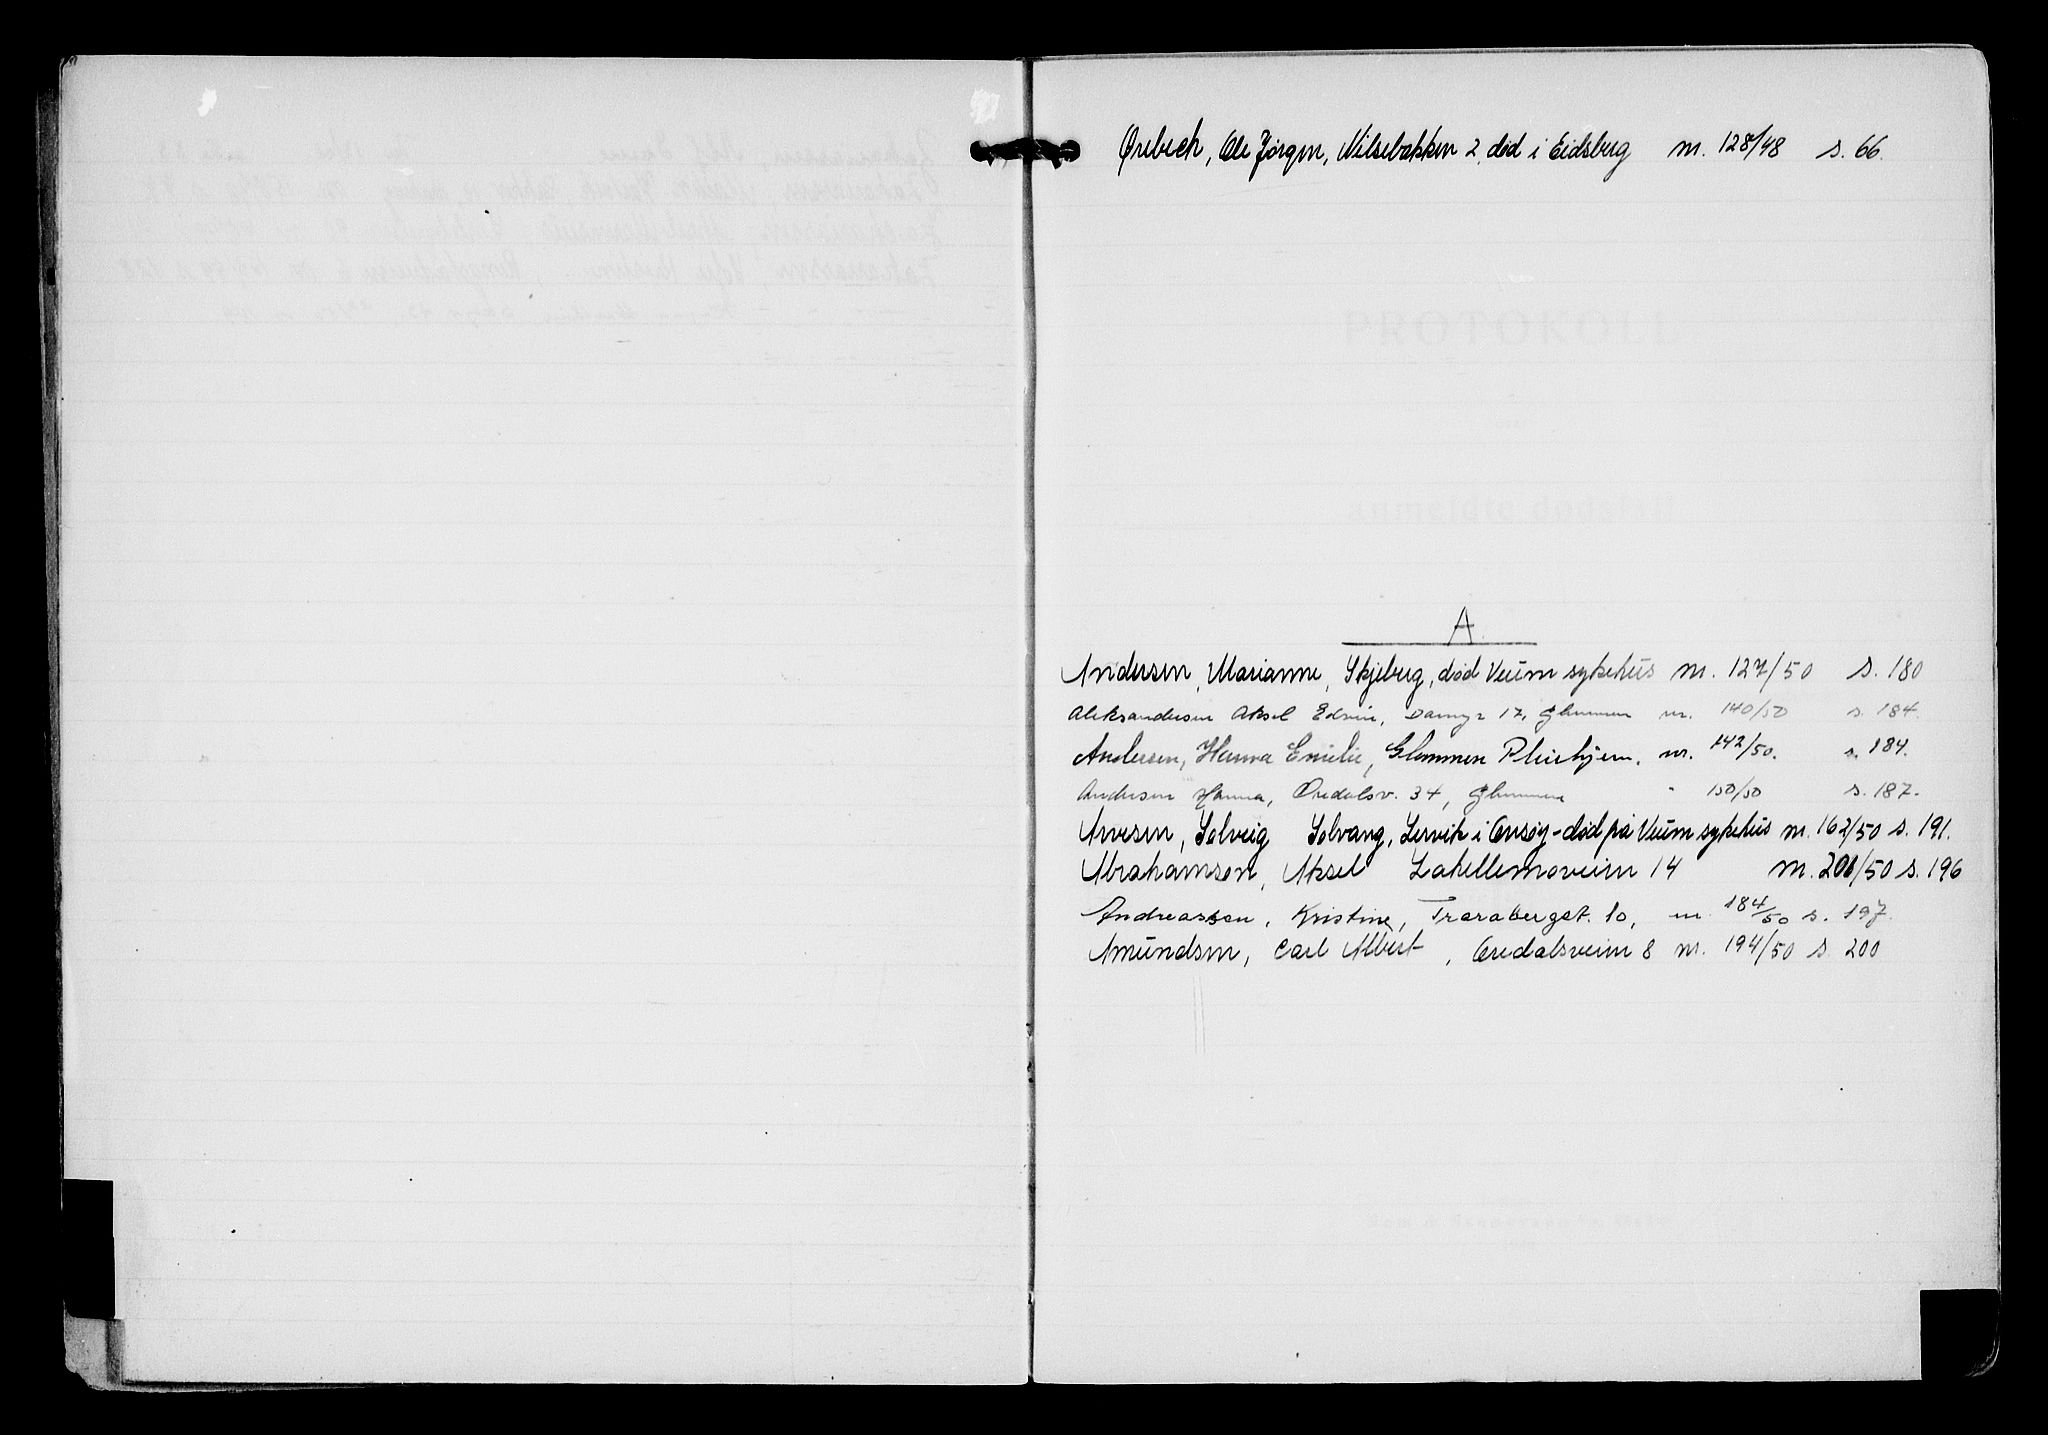 Ørebech, Ole Jörgen, Nilsebakken 2, död i Eidsberg nr. 128/48 s. 66.
A.
Andersen, Marianne, Skjeberg, död Veum sykehus nr. 127/50 s. 180
Aleksandersen Aksel Edvin, Damyr 17, Glemmen nr. 140/50 s. 184.
Andersen, Hanna Emilie, Glemmen Pleiehjem. nr. 142/50. s. 184.
Andersen Hanna, Oredalsv. 34, Glemmen " 150/50 s. 187.
Arvesen, Solveig Solvang, Lervik i Onsöy - död på Veum sykehus nr. 162/50 s. 191.
Abrahamsen, Aksel Lahellemoveien 14 nr. 201/50 s. 196
Andreassen, Kristine, Traraberget. 10, nr. 184/50 s. 197.
Amundsen, Carl Albert, Oredalsveien 8 nr. 194/50 s. 200